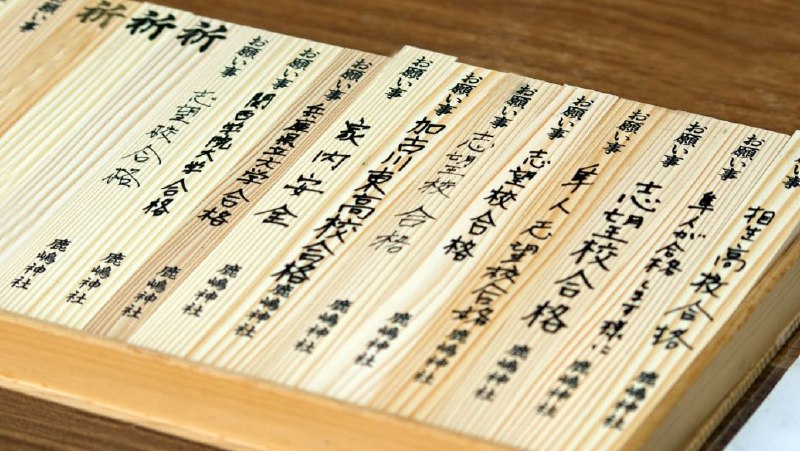 お願い事 相生高校合格 鹿嶋神社
お願い事 隼人が合格します様に 鹿嶋神社
お願い事 志望校合格 鹿嶋神社
お願い事 隼人 志望校合格 鹿嶋神社
お願い事 志望校合格 鹿嶋神社
お願い事 志望校合格 鹿嶋神社
お願い事 加古川東高校合格 鹿嶋神社
お願い事 家内安全 鹿嶋神社
お願い事 兵庫県立大学合格 鹿嶋神社
お願い事 関西学院大学合格 鹿嶋神社
お願い事 志望校合格 鹿嶋神社
祈
祈
祈
願い事